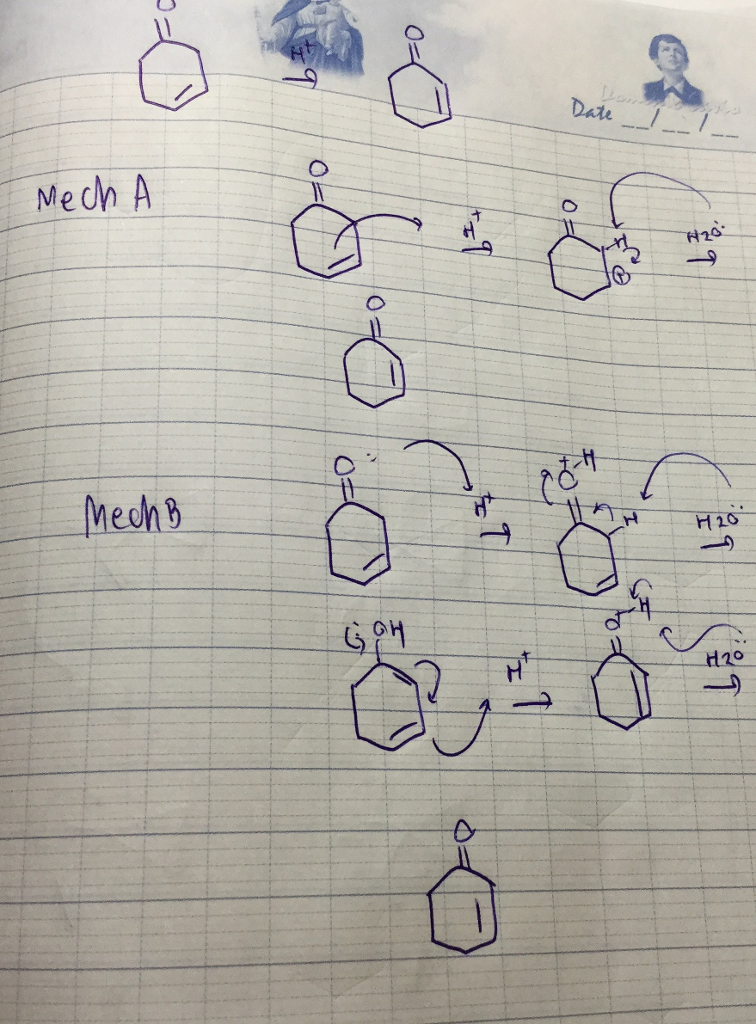 O O
H+
Date __/__/__
Mech A
O
H+
O
H
+
H2O:
O
Mech B
O:
H+
+
O-H
H
H2O:
: OH
H+
+
O-H
H2O:
O